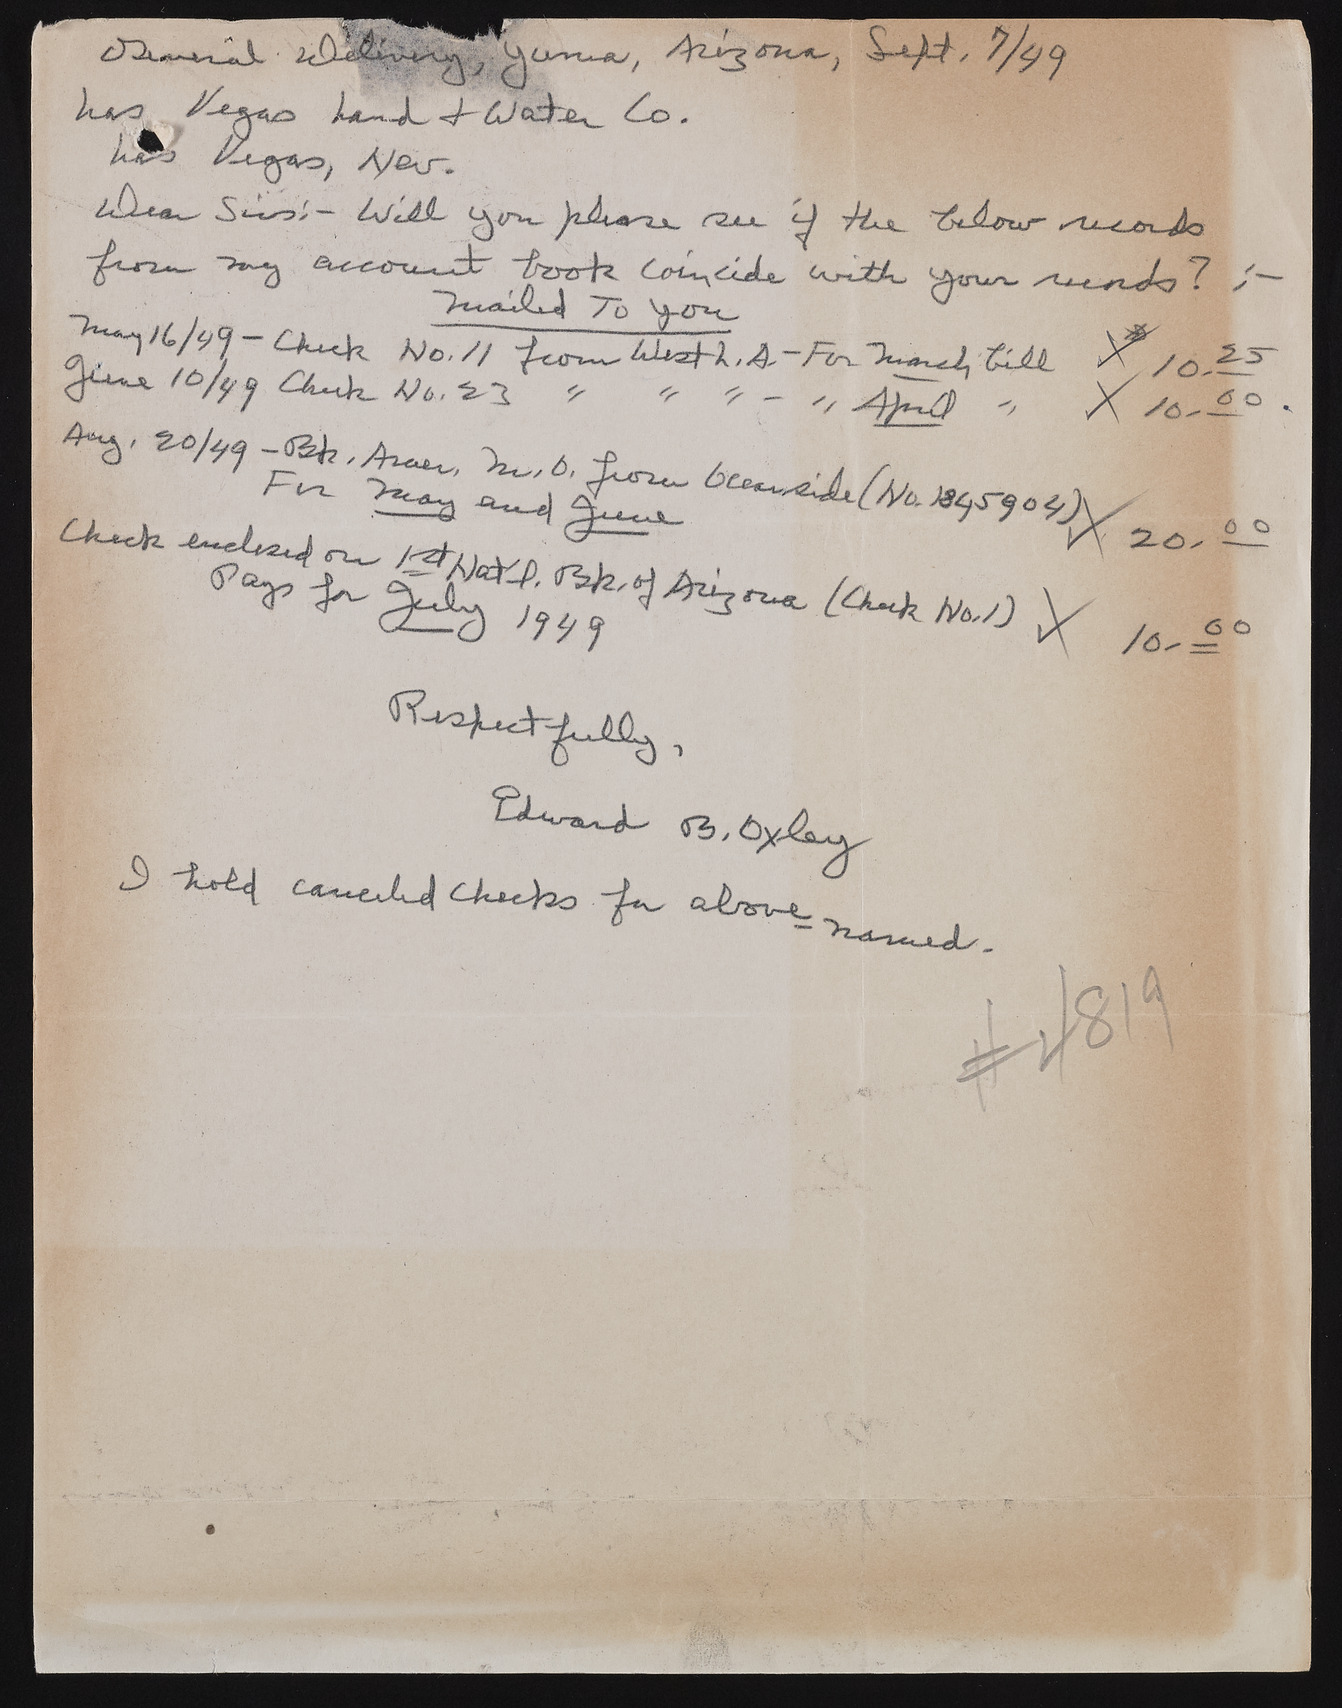 General Delivery, Yuma, Arizona, Sept. 7/49
Las Vegas Land & Water Co.
Las Vegas, Nev.
Dear Sirs:- Will you please see if the below records
from my account book coincide with your records? :-
Mailed To you
May 16/49 - Check No. 11 from West L.A. - For March bill X 10.25
June 10/49 Check No. 23 " " " - " April " X 10.00.
Aug. 20/49 - Bk. Amer. M.O. from Oceanside (No. 1845904)
For May and June X 20.00
Check enclosed on 1st Nat'l. Bk. of Arizona (Check No. 1)
Pays for July 1949 X 10.00
Respectfully,
Edward B. Oxley
I hold canceled checks for above-named.
# 4819